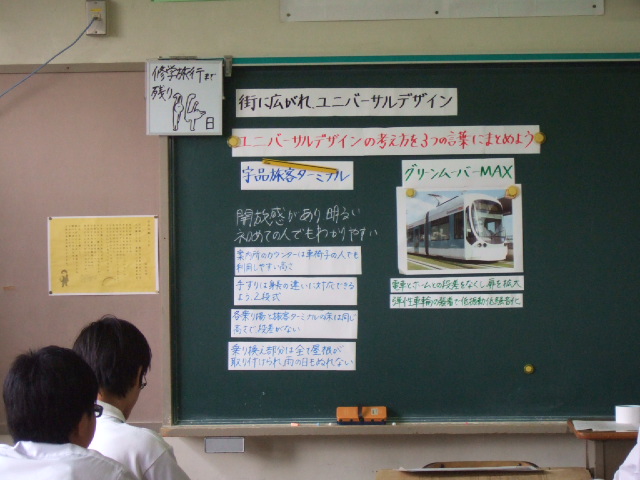 修学旅行まで
残り
日
街に広がれ、ユニバーサルデザイン
ユニバーサルデザインの考え方を3つの言葉にまとめよう
宇品旅客ターミナル
グリーンムーバーMAX
開放感があり明るい
初めての人でもわかりやすい
案内所のカウンターは車椅子の人でも
利用しやすい高さ
手すりは身長の違いに対応できる
よう、2段式
各乗り場と旅客ターミナルの床は同じ
高さで段差がない
乗り換え部分は全て屋根が
取り付けられ、雨の日もぬれない
電車とホームとの段差をなくし、扉を拡大
弾性車輪の装着で低振動低騒音化